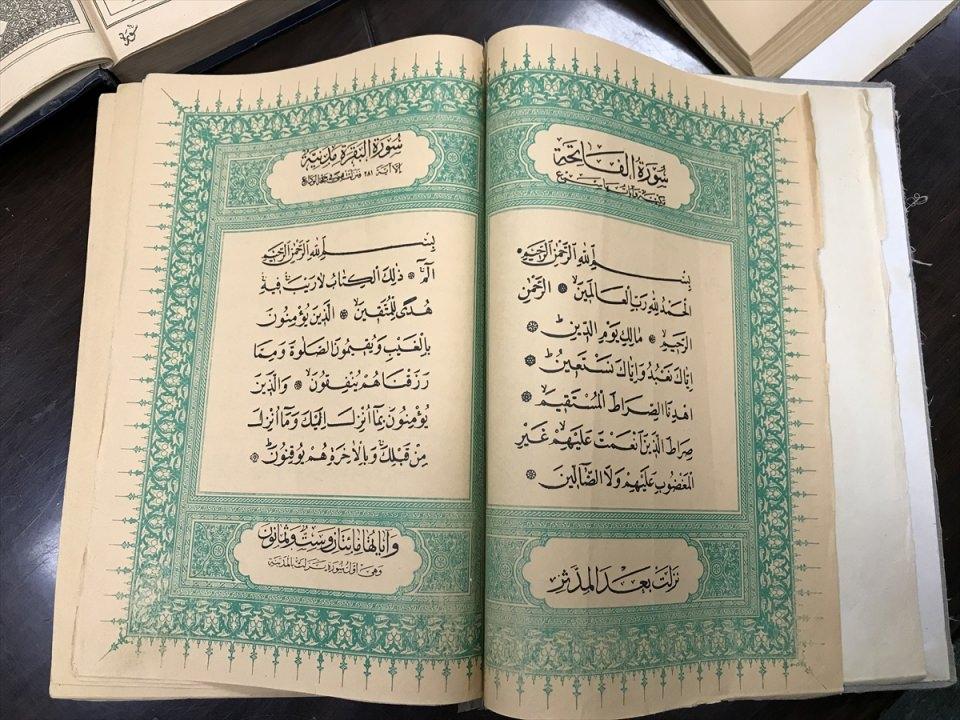 سُورَةُ الفَاتِحَةِ
مكية
بِسْمِ اللهِ الرَّحْمٰنِ الرَّحِيمِ
اَلْحَمْدُ لِلّٰهِ رَبِّ الْعَالَمِينَ ۞ اَلرَّحْمٰنِ
الرَّحِيمِ ۞ مَالِكِ يَوْمِ الدِّينِ ۞
اِيَّاكَ نَعْبُدُ وَاِيَّاكَ نَسْتَعِينُ ۞
اِهْدِنَا الصِّرَاطَ الْمُسْتَقِيمَ ۞
صِرَاطَ الَّذِينَ اَنْعَمْتَ عَلَيْهِمْ غَيْرِ
الْمَغْضُوبِ عَلَيْهِمْ وَلَا الضَّالِّينَ ۞
نزلت بعد المدثر
سُورَةُ البَقَرَةِ مَدَنِيَّة
الا آية ٢٨١ فنزلت بمنى في حجة الوداع
بِسْمِ اللهِ الرَّحْمٰنِ الرَّحِيمِ
الٓمٓ ۞ ذٰلِكَ الْكِتَابُ لَا رَيْبَ فِيهِ
هُدًى لِلْمُتَّقِينَ ۞ اَلَّذِينَ يُؤْمِنُونَ
بِالْغَيْبِ وَيُقِيمُونَ الصَّلٰوةَ وَمِمَّا
رَزَقْنَاهُمْ يُنْفِقُونَ ۞ وَالَّذِينَ
يُؤْمِنُونَ بِمَا اُنْزِلَ اِلَيْكَ وَمَا اُنْزِلَ
مِنْ قَبْلِكَ وَبِالْاٰخِرَةِ هُمْ يُوقِنُونَ ۞
وآياتها مائتان وست وثمانون
وهي اول سورة نزلت بالمدينة